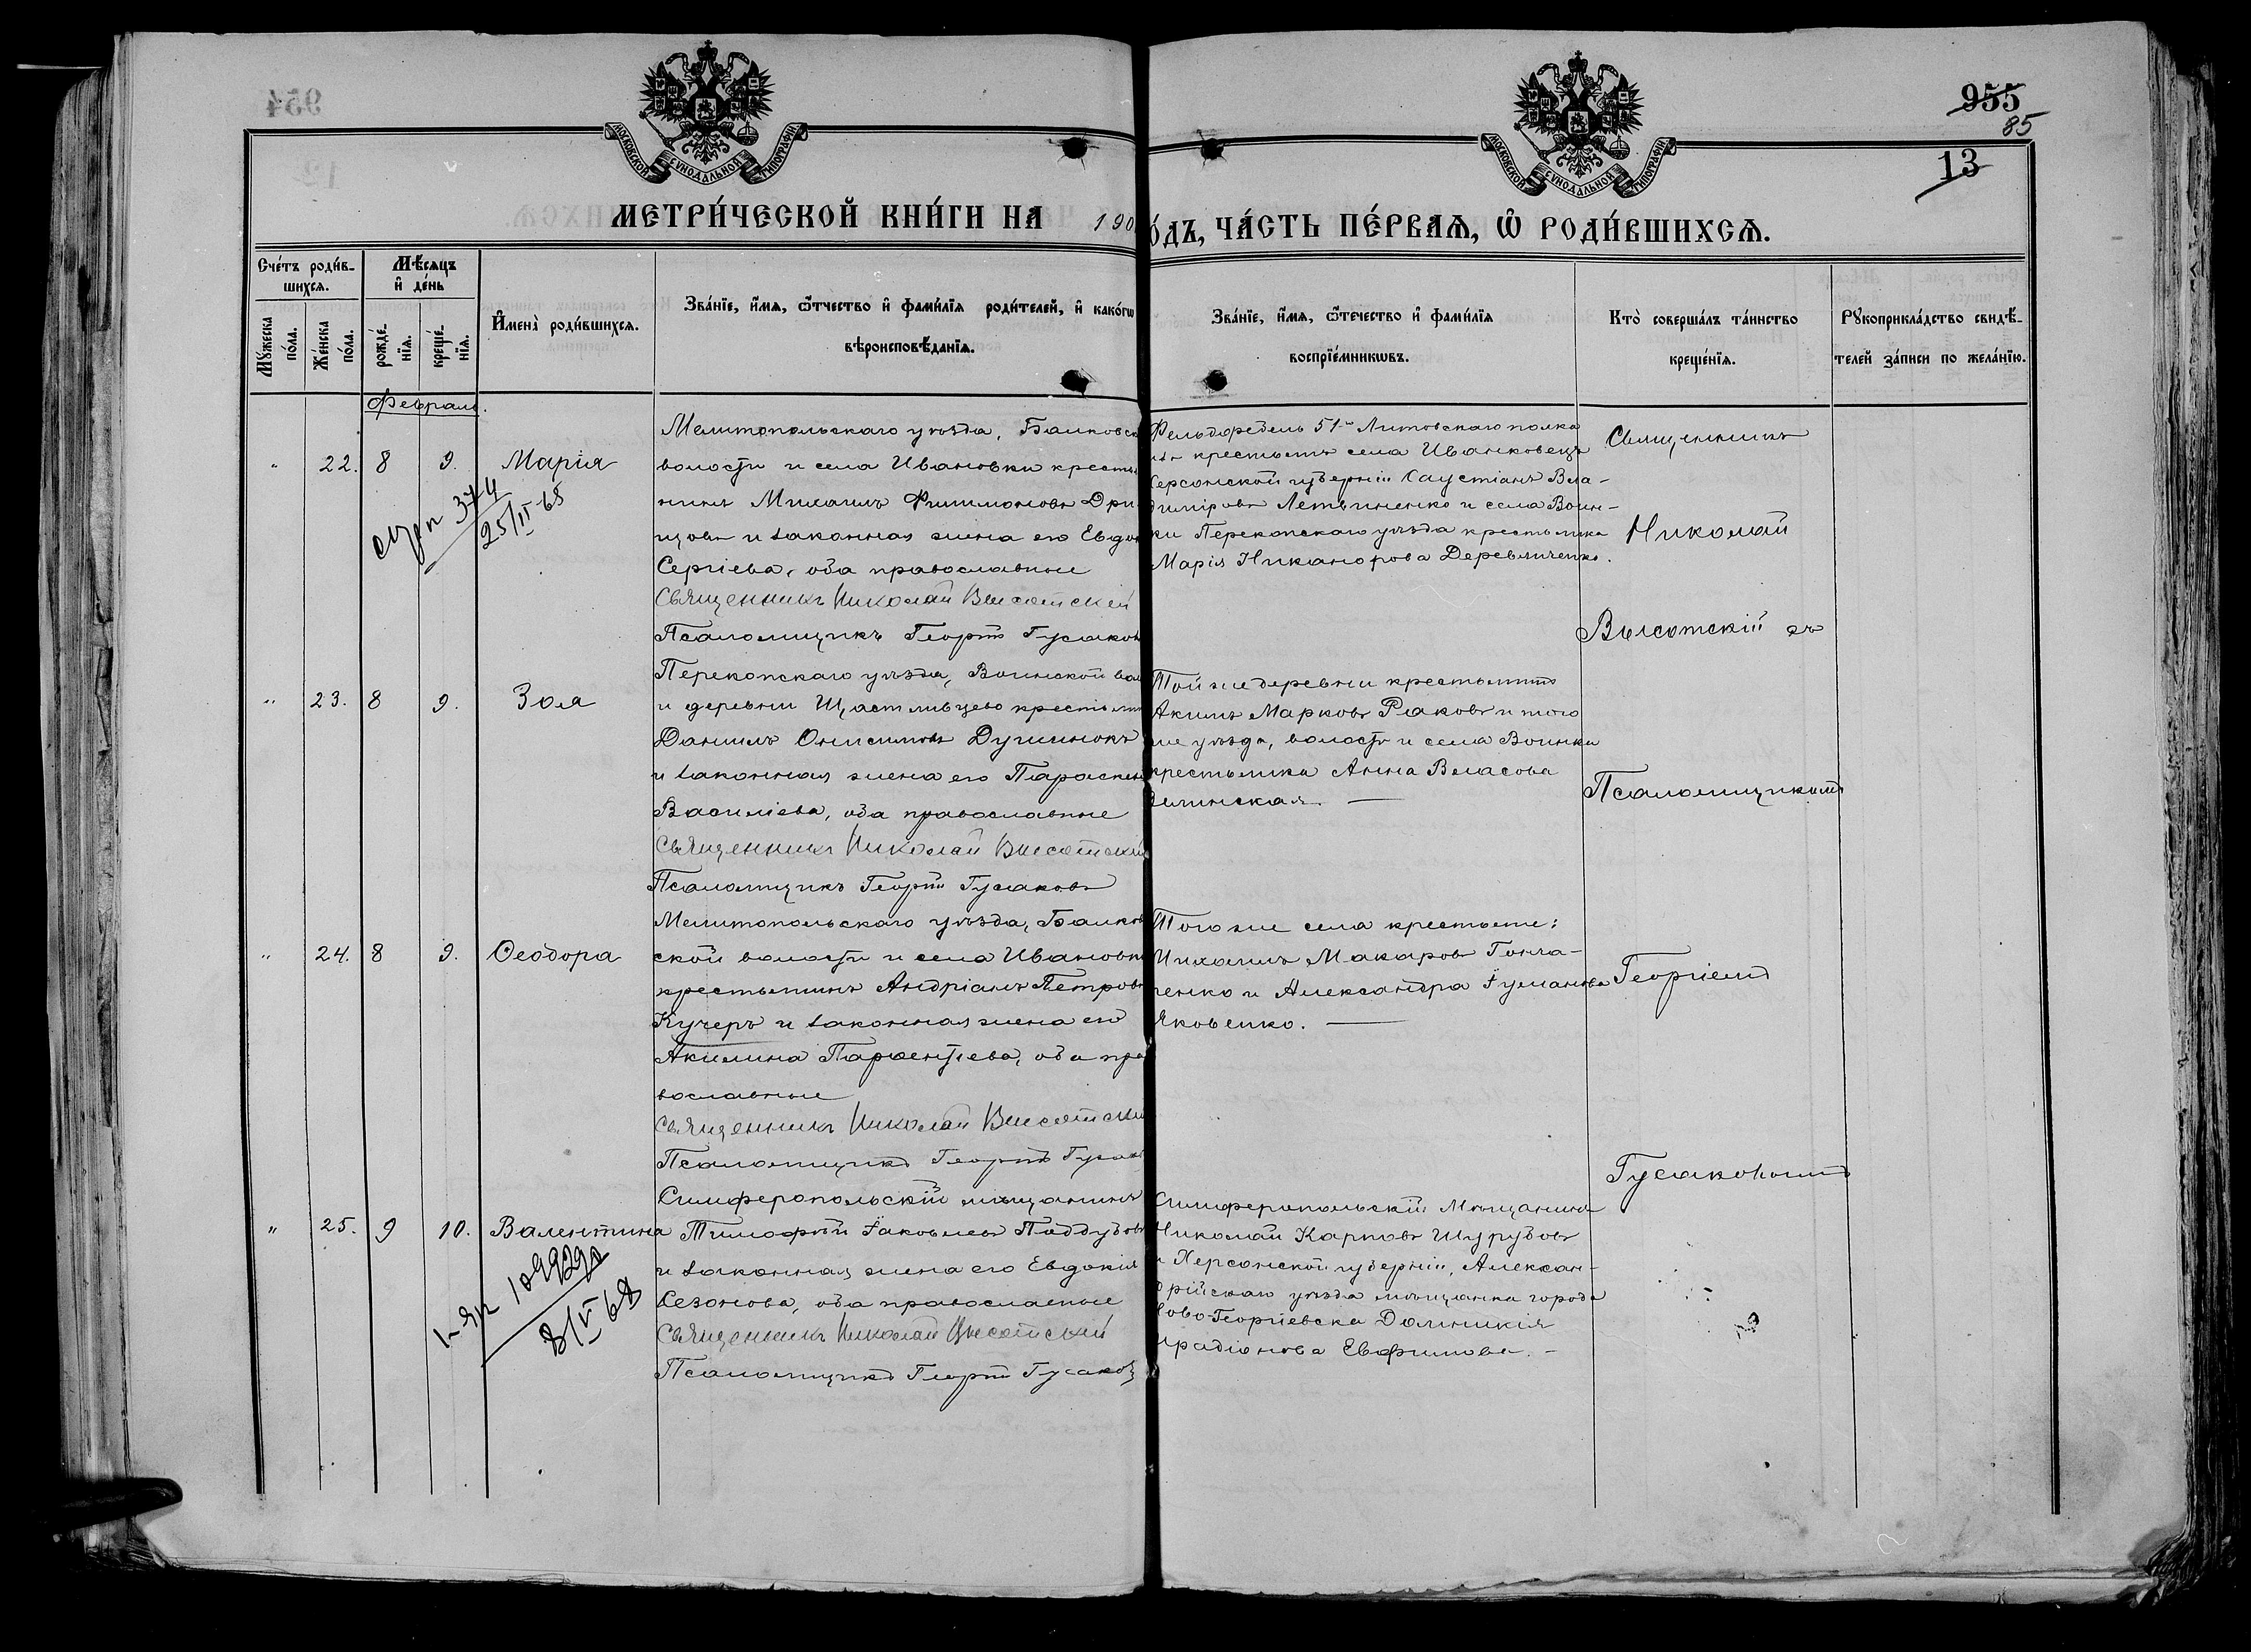 955
85
13
МОСКОВСКОЙ СѴНОДАЛЬНОЙ ТИПОГРАФІИ
МОСКОВСКОЙ СѴНОДАЛЬНОЙ ТИПОГРАФІИ
МЕТРИ́ЧЕСКОЙ КНИ́ГИ НА 190
О́ДЪ, ЧА́СТЬ ПЕ́РВАѦ, Ѿ РОДИ́ВШИХСѦ.
Счéтъ роди́в-
шихсѧ.
Мꙋ́жеска по́ла.
Же́нска по́ла.
Мѣ́сѧцъ и҆ де́нь
рожде́-
нїѧ.
креще́-
нїѧ.
И҆мена̀ роди́вшихсѧ.
Зва́нїе, и҆́мѧ, ѻ҆́тчество и҆ фами́лїѧ роди́телей, и҆ како́гѡ
вѣроисповѣ́данїѧ.
Зва́нїе, и҆́мѧ, ѻ҆́течество и҆ фами́лїѧ
воспрїе́мникѡвъ.
Кто̀ соверша́лъ та́инство
креще́нїѧ.
Рꙋкоприкла́дство свидѣ́-
телей за́писи по жела́нїю.
Февраль.
" 22. 8 9. Марія
374
25/II-65
Мелитопольскаго уѣзда, Балковск
волости и села Ивановки крестья
нинъ Михаилъ Филимоновъ Дри
цовъ и законная жена его Евдок
Сергіева, оба православные
Священникъ Николай Высотскій
Псаломщикъ Георгій Гусаков
Фельдфебель 51-го Литовскаго полка
изъ крестьянъ села Иванковецъ
Херсонской губерніи Саустіанъ Вла-
диміровъ Летвиненко и села Воин-
ки Перекопскаго уѣзда крестьянка
Марія Никанорова Деревянченко.
Священникъ
Николай
Высотскій съ
Псаломщикомъ
Георгіемъ
Гусаковымъ
" 23. 8 9. Зоя
Перекопскаго уѣзда, Воинской вол
и деревни Щастливцево крестьян
Даніилъ Онисимовъ Дучинокъ
и законная жена его Параскев
Василіева, оба православные
Священникъ Николай Высотскій
Псаломщикъ Георгій Гусаковъ
Той же деревни крестьянинъ
Акимъ Марковъ Раковъ и того
же уѣзда, волости и села Воинки
крестьянка Анна Власова
" 24. 8 9. Ѳеодора
Мелитопольскаго уѣзда, Балков
ской волости и села Ивановки
крестьянинъ Андріанъ Петровъ
Кучеръ и законная жена его
Акилина Парѳентіева, оба пра
вославные
Священникъ Николай Высотскі
Псаломщикъ Георгій Гусак
Того же села крестьяне:
Михаилъ Макаровъ Гонча-
ренко и Александра Іуліанова
Яковенко.
" 25. 9 10. Валентина
8/V 68
Симферопольскій мѣщанинъ
Тимофей Іаковлевъ Поддубов
и законная жена его Евдокія
Сезонова, оба православные
Священникъ Николай Высотскій
Псаломщикъ Георгій Гусаковъ
Симферопольскій Мѣщанинъ
Николай Карповъ Шурубовъ
и Херсонской губерніи, Алексан-
дрійскаго уѣзда мѣщанка города
Ново-Георгіевска Домникія
Иродіонова Евфимова.